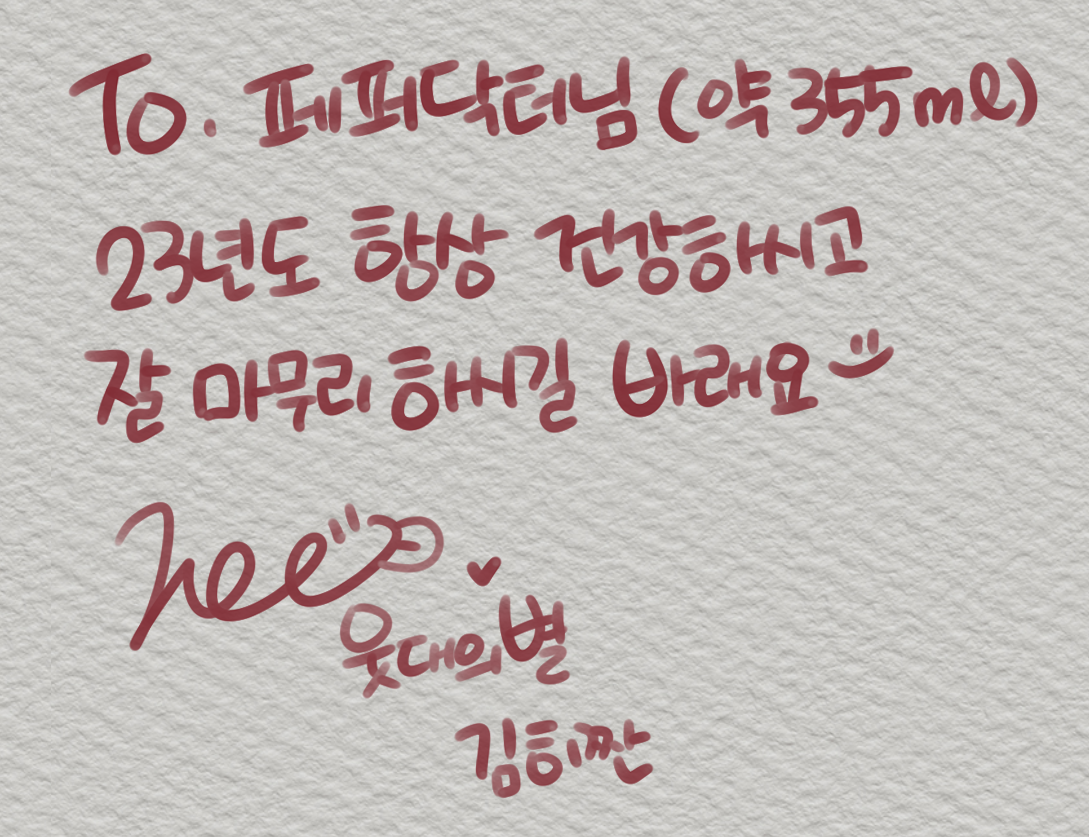 To. 페퍼닥터님 (약 355ml)
23년도 항상 건강하시고
잘 마무리 하시길 바래요
Hee
웃대의별
김희짠